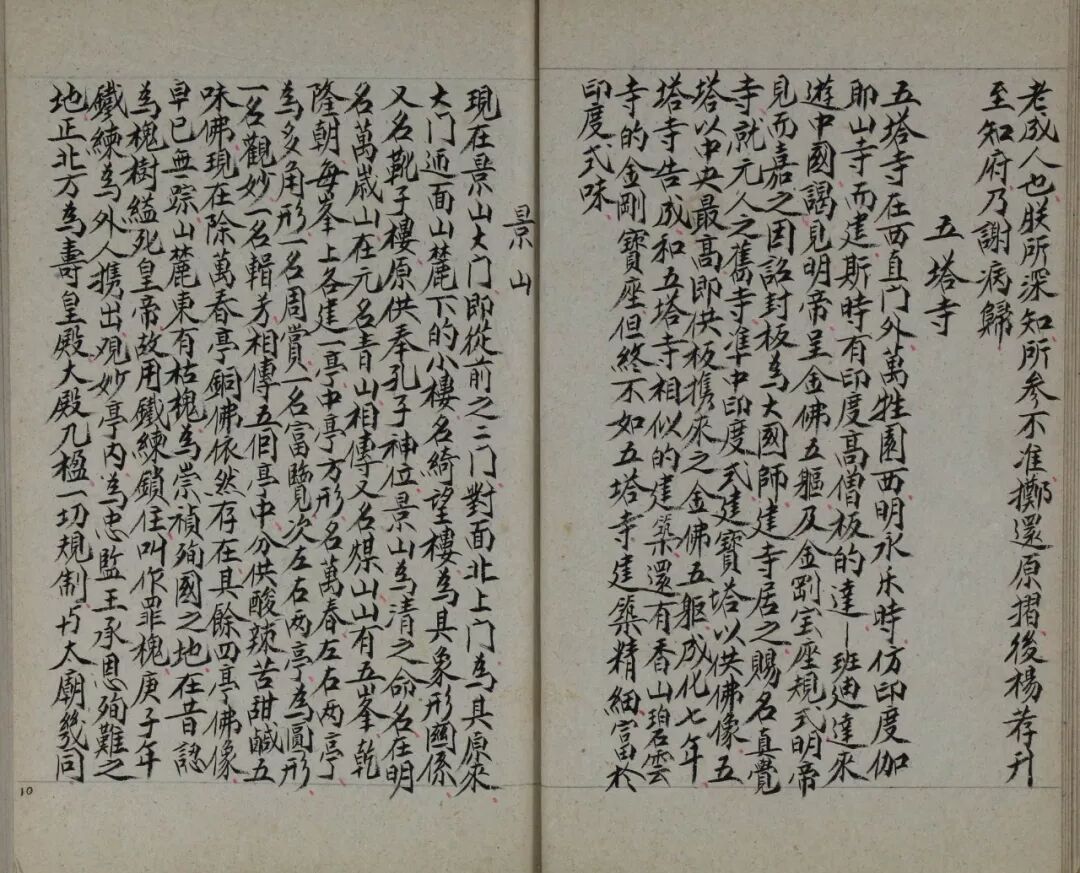 老成人也朕所深知所参不准擲還原摺後楊荐升
至知府乃謝病歸
五塔寺
五塔寺在西直门外萬牲園西明永乐時仿印度伽
耶山寺而建斯時有印度高僧板的達—班迪達來
遊中國謁見明帝呈金佛五軀及金剛宝座規式明帝
見而嘉之因詔封板為大國師建寺居之賜名真覺
寺就元人之舊寺准中印度式建寶塔以供佛像五
塔以中央最高即供板携來之金佛五軀成化七年
塔寺告成和五塔寺相似的建築還有香山碧雲
寺的金剛寶座但终不如五塔寺建築精細富於
印度式味
景山
現在景山大门即從前之二门對面北上门為其原來
大门迊面山麓下的小樓名綺望樓為其象形關係
又名靴子樓原供奉孔子神位景山為清之命名在明
名萬歲山在元名青山相傳又名煤山山有五峯乾
隆朝每峯上各建一亭中亭方形名萬春左右两亭
為多角形一名周賞一名富覽次左右两亭為圓形
一名觀妙一名輯芳相傳五個亭中分供酸辣苦甜鹹五
味佛現在除萬春亭銅佛依然存在具餘四亭佛像
早已無踪山麓東有枯槐為崇禎殉國之地在昔認
為槐樹縊死皇帝故用鐵練鎖住叫作罪槐庚子年
鐵練為外人携出观妙亭内為忠監王承恩殉難之
地正北方為壽皇殿大殿九楹一切規制与太廟幾同
10